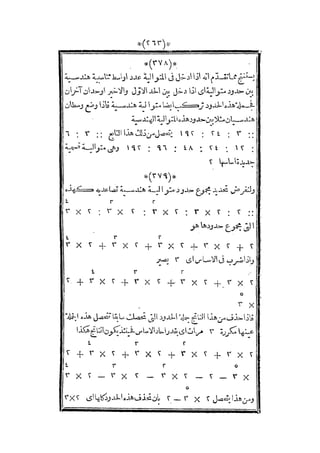 *(٢٦٣)*
*(٣٧٨)*
يستنتج مما تقدم انه اذا ادخل فى المتوالية عدد اواسط متناسبة هندسية
بين حدود متوالية اى اذا دخل بين الحد الاول والاخير اوحدان آخران
فجملة هذه الحدود تتركب ايضا متوالية هندسية فاذا وضع وسطان
هندسيان مثلا بين حدود هذه المتوالية الهندسية
:: ٣ : ٢٤ : ١٩٢ يتحصل من ذلك هذا الناتج :: ٣ : ٦
: ١٢ : ٢٤ : ٤٨ : ٩٦ : ١٩٢ وهى متوالية قسمية
جديدة اساسها ٢
*(٣٧٩)*
ولنفرض تحديد مجموع حدود متوالية هندسية تصاعدية كهذه
٢ ٣ ٤
:: ٢ : ٢ × ٣ : ٢ × ٣ : ٢ × ٣ : ٢ × ٣
التى مجموع حدودها هو
٢ ٣ ٤
٢ + ٢ × ٣ + ٢ × ٣ + ٢ × ٣ + ٢ × ٣
واذا ضرب فى الاساس اى ٣ يصير
٢ ٣ ٤
٢ × ٣ + ٢ × ٣ + ٢ × ٣ + ٢ × ٣ + ٢
٥
× ٣
فاذا حذف من هذا الناتج جملة الحدود التى تحصلت سابقا تتحصل هذه الجملة
عينها مكررة ٣ مرات اى بقدر احاد الاساس فحينئذ يكون الناتج هكذا
٢ ٣ ٤
٢ × ٣ + ٢ × ٣ + ٢ × ٣ + ٢ × ٣ + ٢
٥ ٢ ٣ ٤
× ٣ - ٢ - ٢ × ٣ - ٢ × ٣ - ٢ × ٣ - ٢ × ٣
٥
ومن هذا يتحصل ٢ × ٣ - ٢ بان تحذف هذه الحدود كلها اى ٢×٣